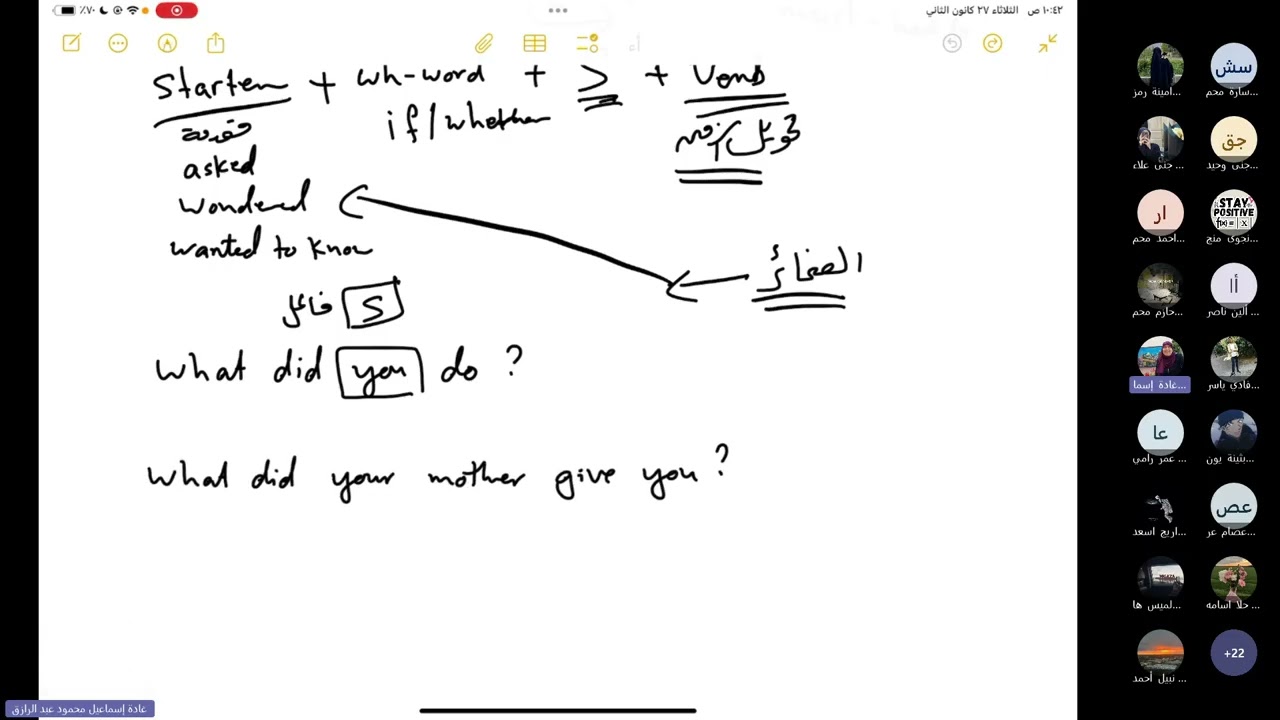 ١٠:٤٢ ص الثلاثاء ٢٧ كانون الثاني
٪٧٠
Starter + wh-word + S + Verb
if/whether
مقدمة
تحويل زمن
asked
wondered
wanted to know
الضمائر
S فاعل
What did you do ?
What did your mother give you ?
أمينة رمز...
ساره محم...
جنى علاء
جنى وحيد
جق
سش
STAY POSITIVE
f(x)= |X|
ار
احمد محم...
نجوى منج...
أا
حازم محم...
ألين ناصر
غادة إسما...
فادي ياسر
عا
عمر رامي
بثينة يون...
عص
اريج اسعد
عصام عر...
لميس ها...
حلا اسامه
نبيل أحمد
+22
غادة إسماعيل محمود عبد الرازق